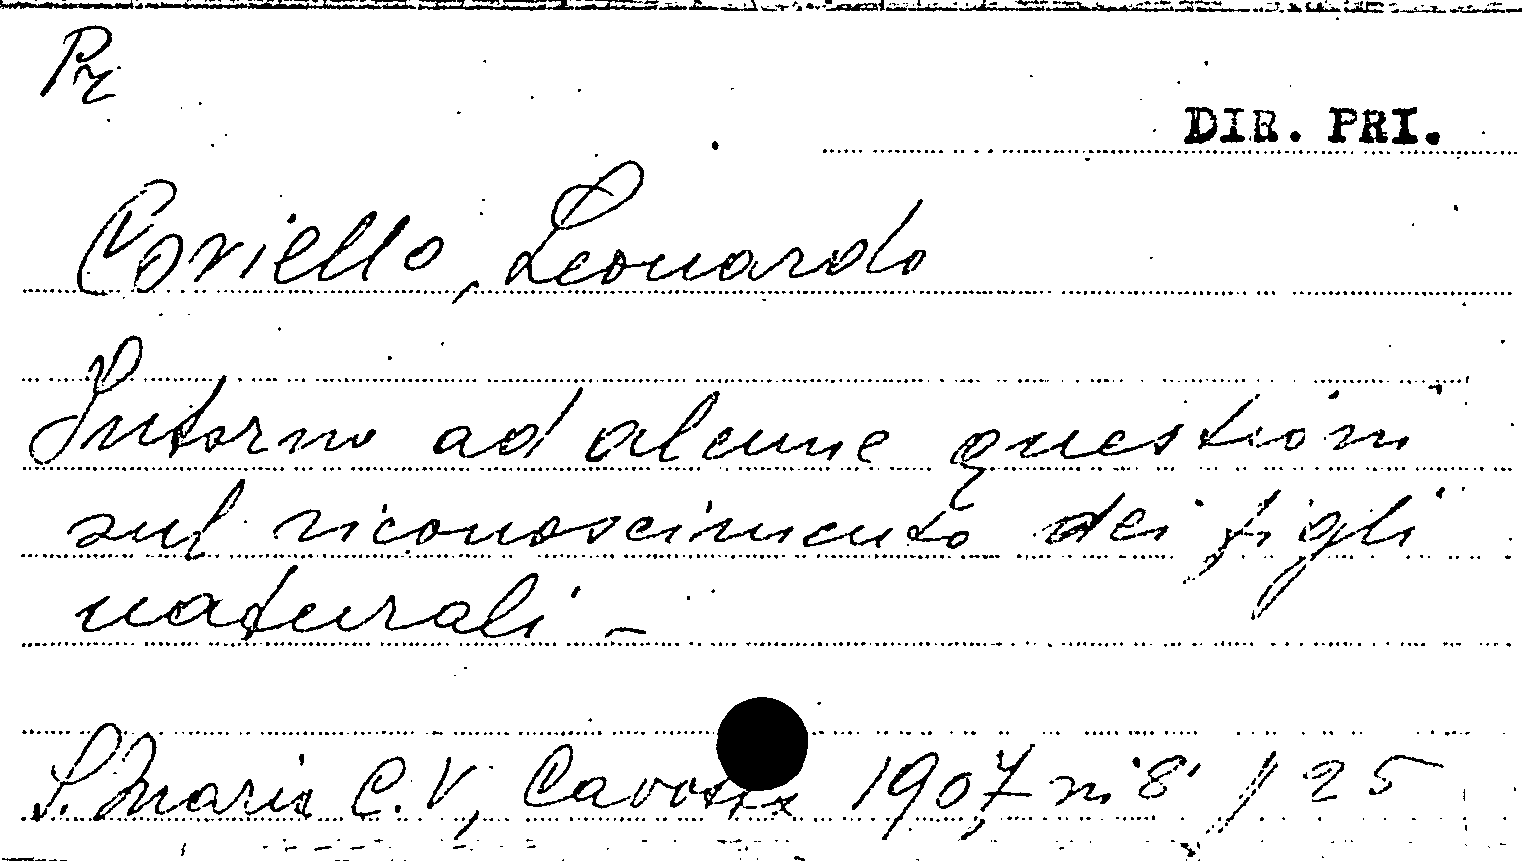 Pr
DIR. PRI.
Coviello, Leonardo
Intorno ad alcune questioni
sul riconoscimento dei figli
naturali -
S. Maria C. V, Cavotta 1907, in 8° / 25